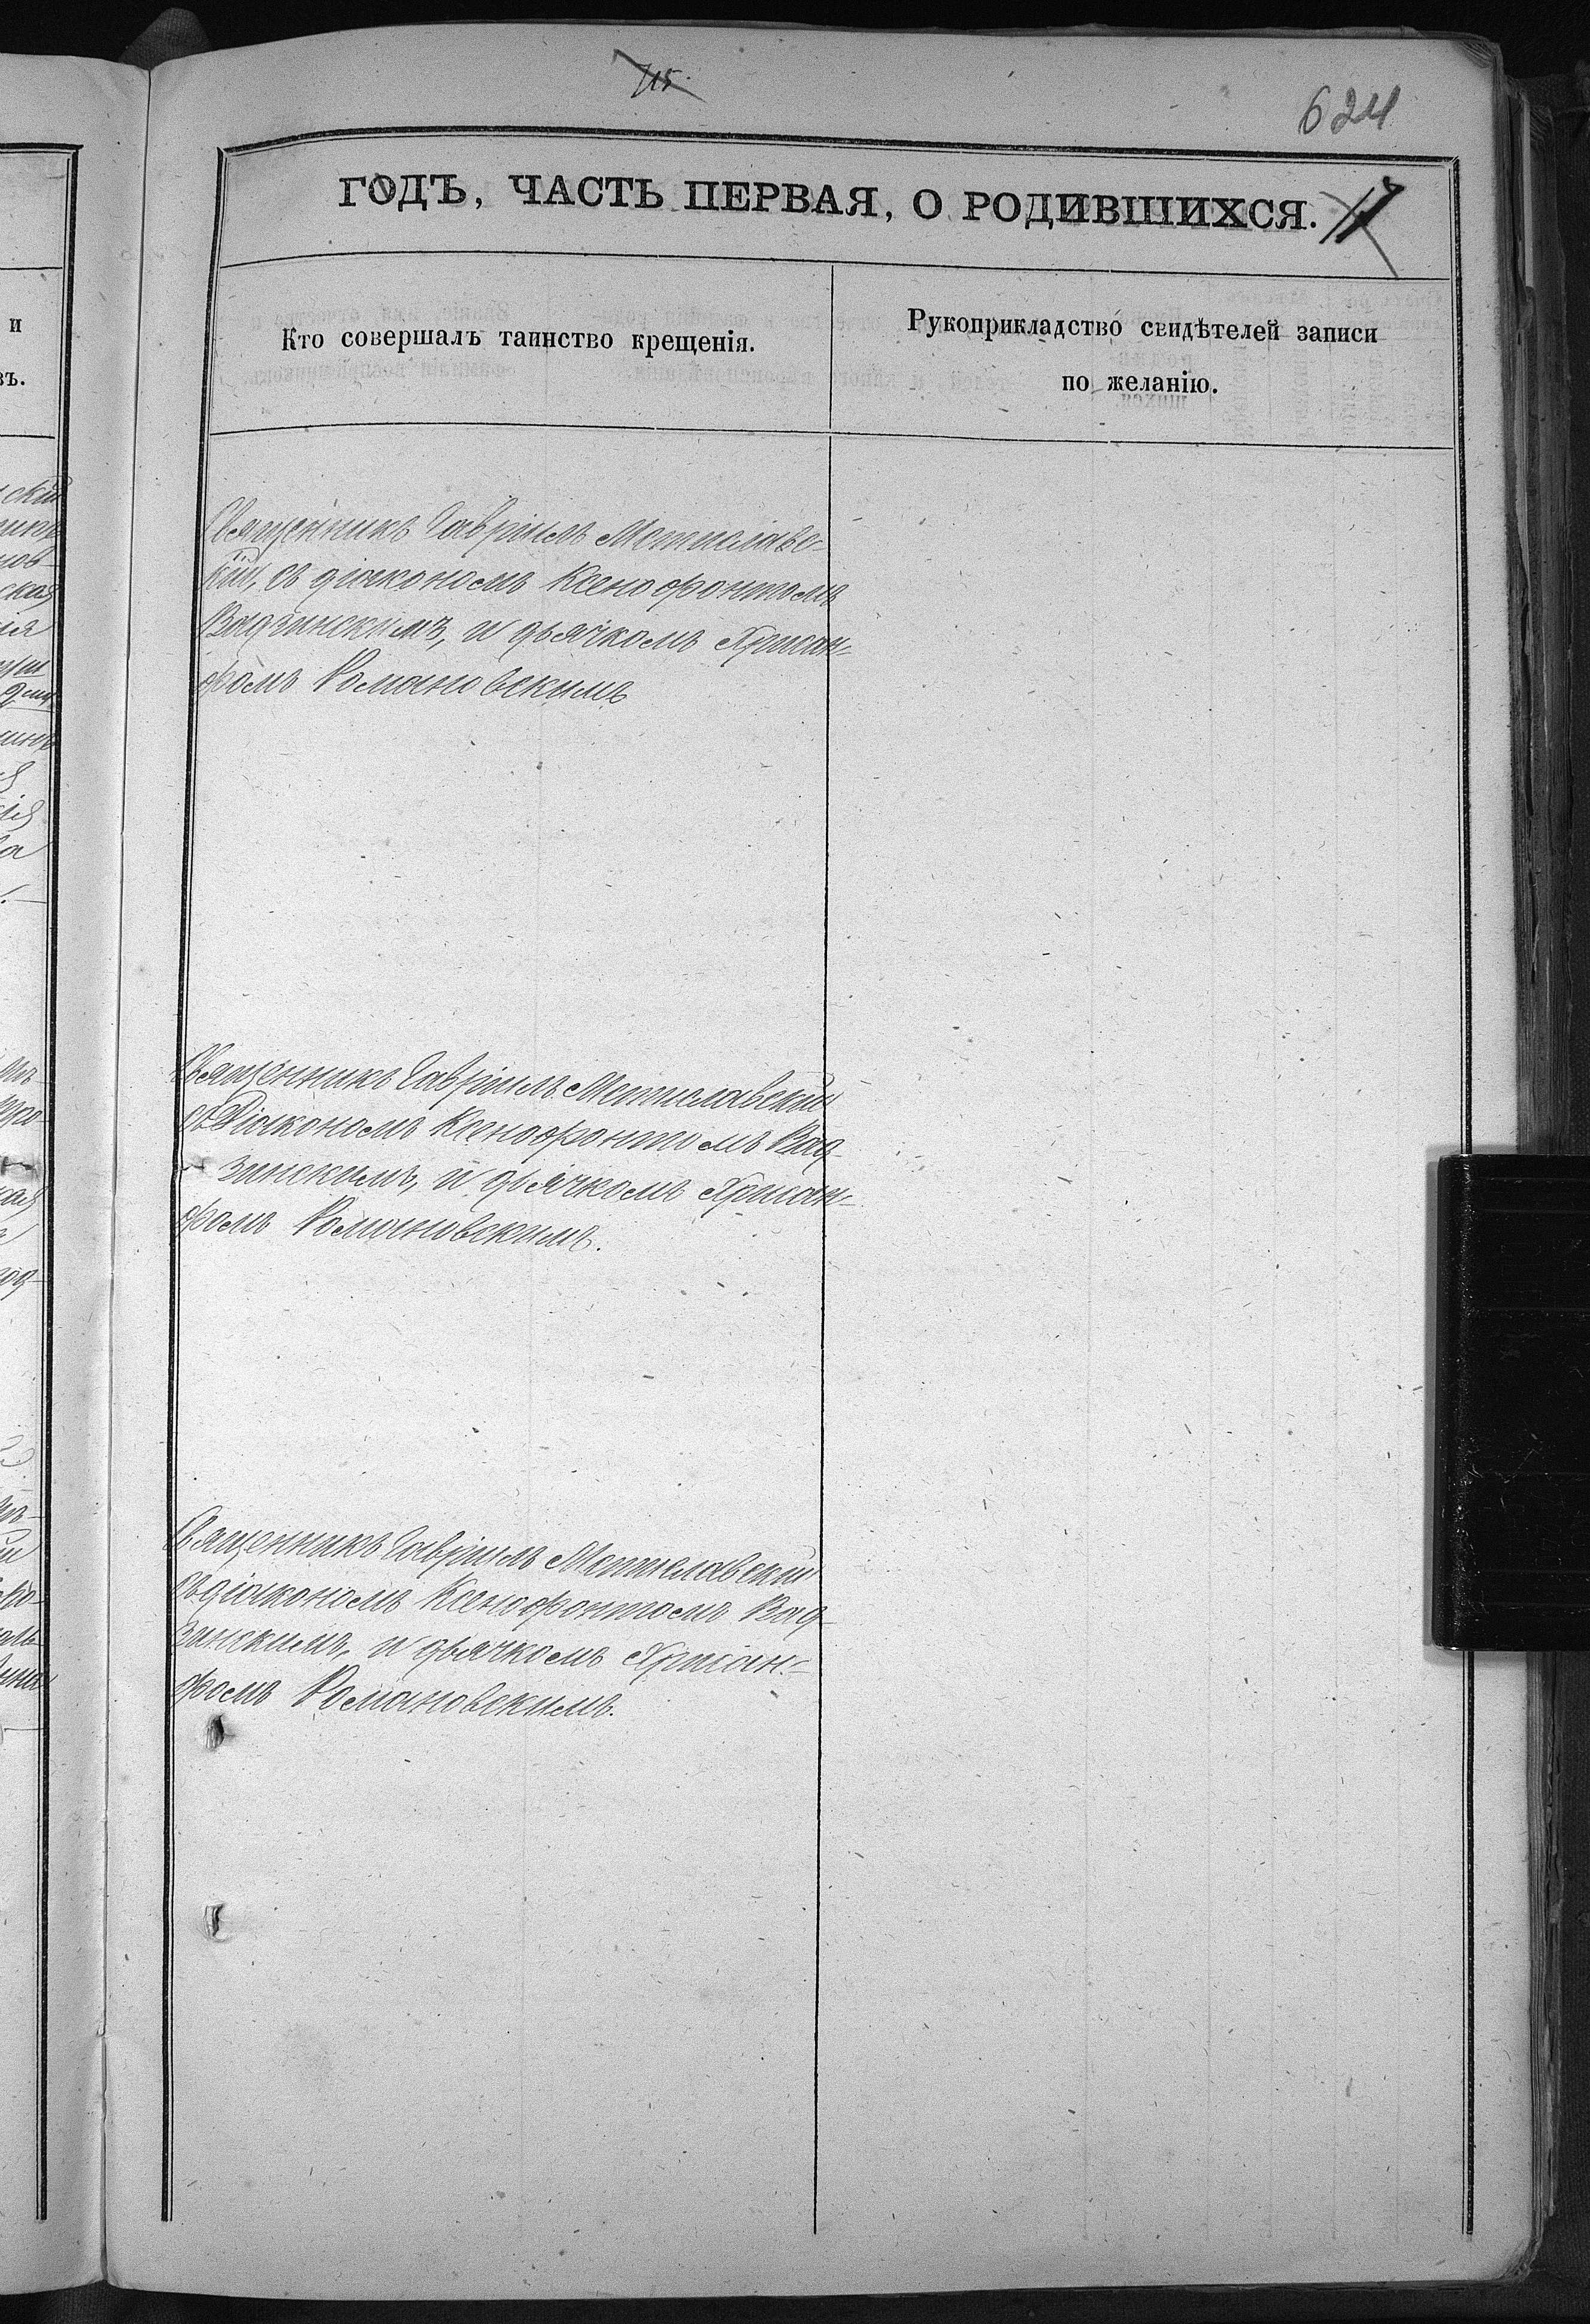 715.
624
ГОДЪ, ЧАСТЬ ПЕРВАЯ, О РОДИВШИХСЯ. 17
Кто совершалъ таинство крещенія.
Рукоприкладство свидѣтелей записи
по желанію.
Священникъ Гавріилъ Мстиславс-
кій, съ діакономъ Ксенофонтомъ
Вадзинскимъ, и дьячкомъ Хрисан=
фомъ Романовскимъ
Священникъ Гавріилъ Мстиславскій
съ Діакономъ Ксенофонтомъ Вад-
зинскимъ, и дьячкомъ Хрисан=
фомъ Романовскимъ.
Священникъ Гавріилъ Мстиславскій
съ діакономъ Ксенофонтомъ Вад-
зинскимъ, и дьячкомъ Хрисан=
фомъ Романовскимъ.